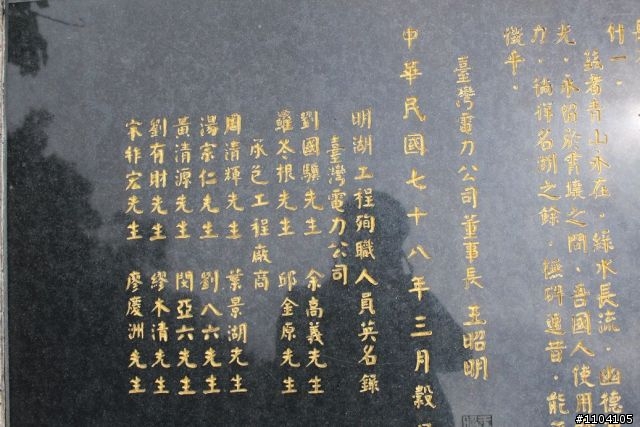 什一、
茲者青山永在，綠水長流，幽德
光，永留於青壤之間，吾國人使用
力，徜徉名湖之餘，撫時追昔，能
徵乎。
臺灣電力公司董事長 王昭明
中華民國七十八年三月穀
明湖工程殉職人員英名錄
臺灣電力公司
劉國驥先生 余高義先生
羅苳根先生 邱金原先生
承包工程廠商
周清輝先生 葉景湖先生
湯宗仁先生 劉八六先生
黃清源先生 閔亞六先生
劉有財先生 繆木清先生
宋作宏先生 廖慶洲先生
#1104105